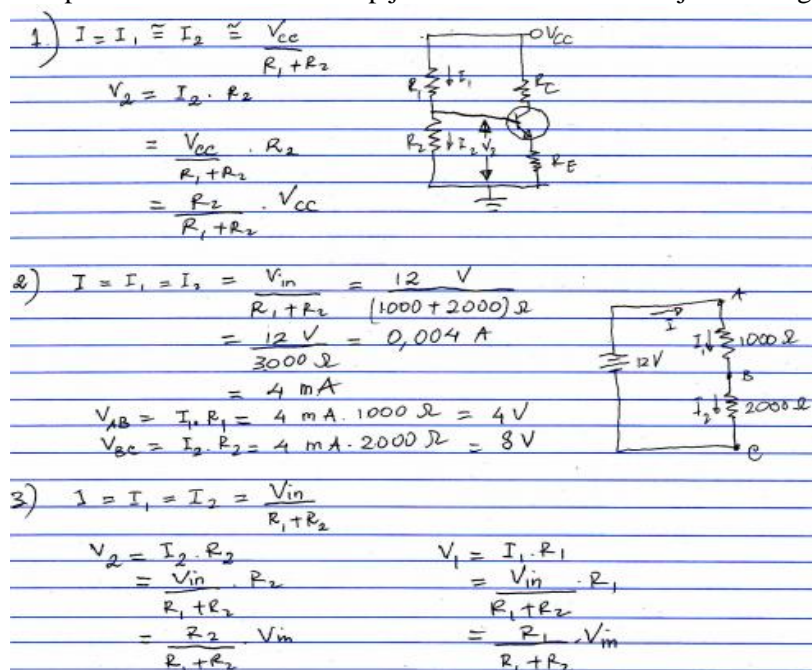 1.) I = I₁ ≅ I₂ ≅ Vcc / R₁+R₂
V₂ = I₂ · R₂
= Vcc / R₁+R₂ · R₂
= R₂ / R₁+R₂ · Vcc
VCC
R₁ ↓I₁ RC
R₂ ↓I₂ V₂ RE
2) I = I₁ = I₂ = Vin / R₁+R₂ = 12 V / (1000+2000)Ω
= 12 V / 3000 Ω = 0,004 A
= 4 mA
VAB = I₁. R₁ = 4 mA. 1000 Ω = 4V
VBC = I₂. R₂ = 4 mA. 2000 Ω = 8V
A
I
I₁↓ 1000Ω
12V B
I₂↓ 2000Ω
C
3) I = I₁ = I₂ = Vin / R₁+R₂
V₂ = I₂. R₂ V₁ = I₁. R₁
= Vin / R₁+R₂ · R₂ = Vin / R₁+R₂ · R₁
= R₂ / R₁+R₂ . Vin = R₁ / R₁+R₂ . Vin